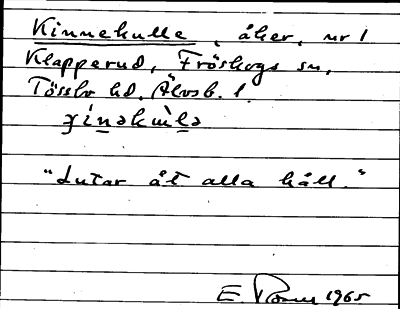 Kinnekulle, åker, nr 1
Klapperud, Fröskogs sn,
Tössbo hd. Älvsb. l.
"Lutar åt alla håll."
E. 1965